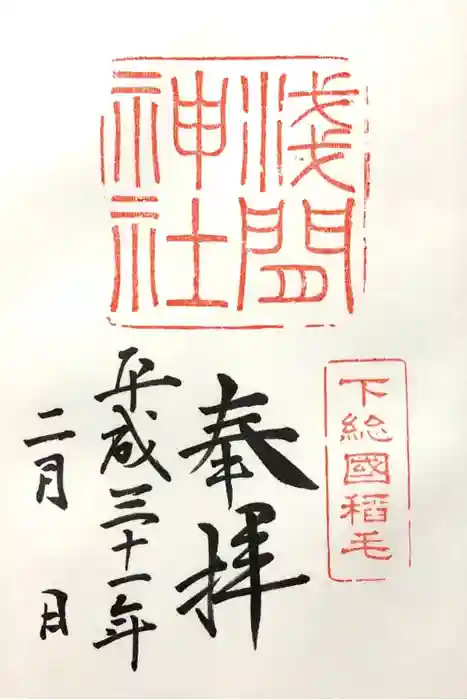 淺間
神社
下総國稲毛
奉拝
平成三十一年
二月 日